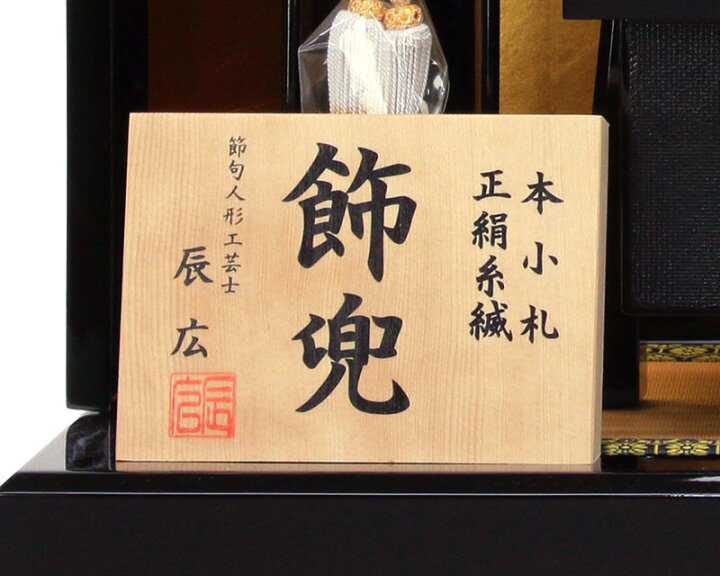 本小札
正絹糸縅
飾兜
節句人形工芸士
辰広
辰広